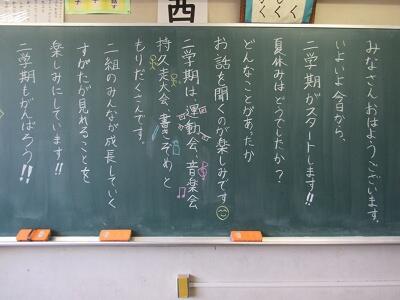 みなさん おはようございます。
いよいよ今日から、
二学期がスタートします!!
夏休みはどうでしたか？
どんなことがあったか
お話を聞くのが楽しみです
二学期は、運動会、音楽会
持久走大会、書きぞめと
もりだくさんです。
二組のみんなが成長していく
すがたが見れることを
楽しみにしています!!
二学期もがんばろう!!
西